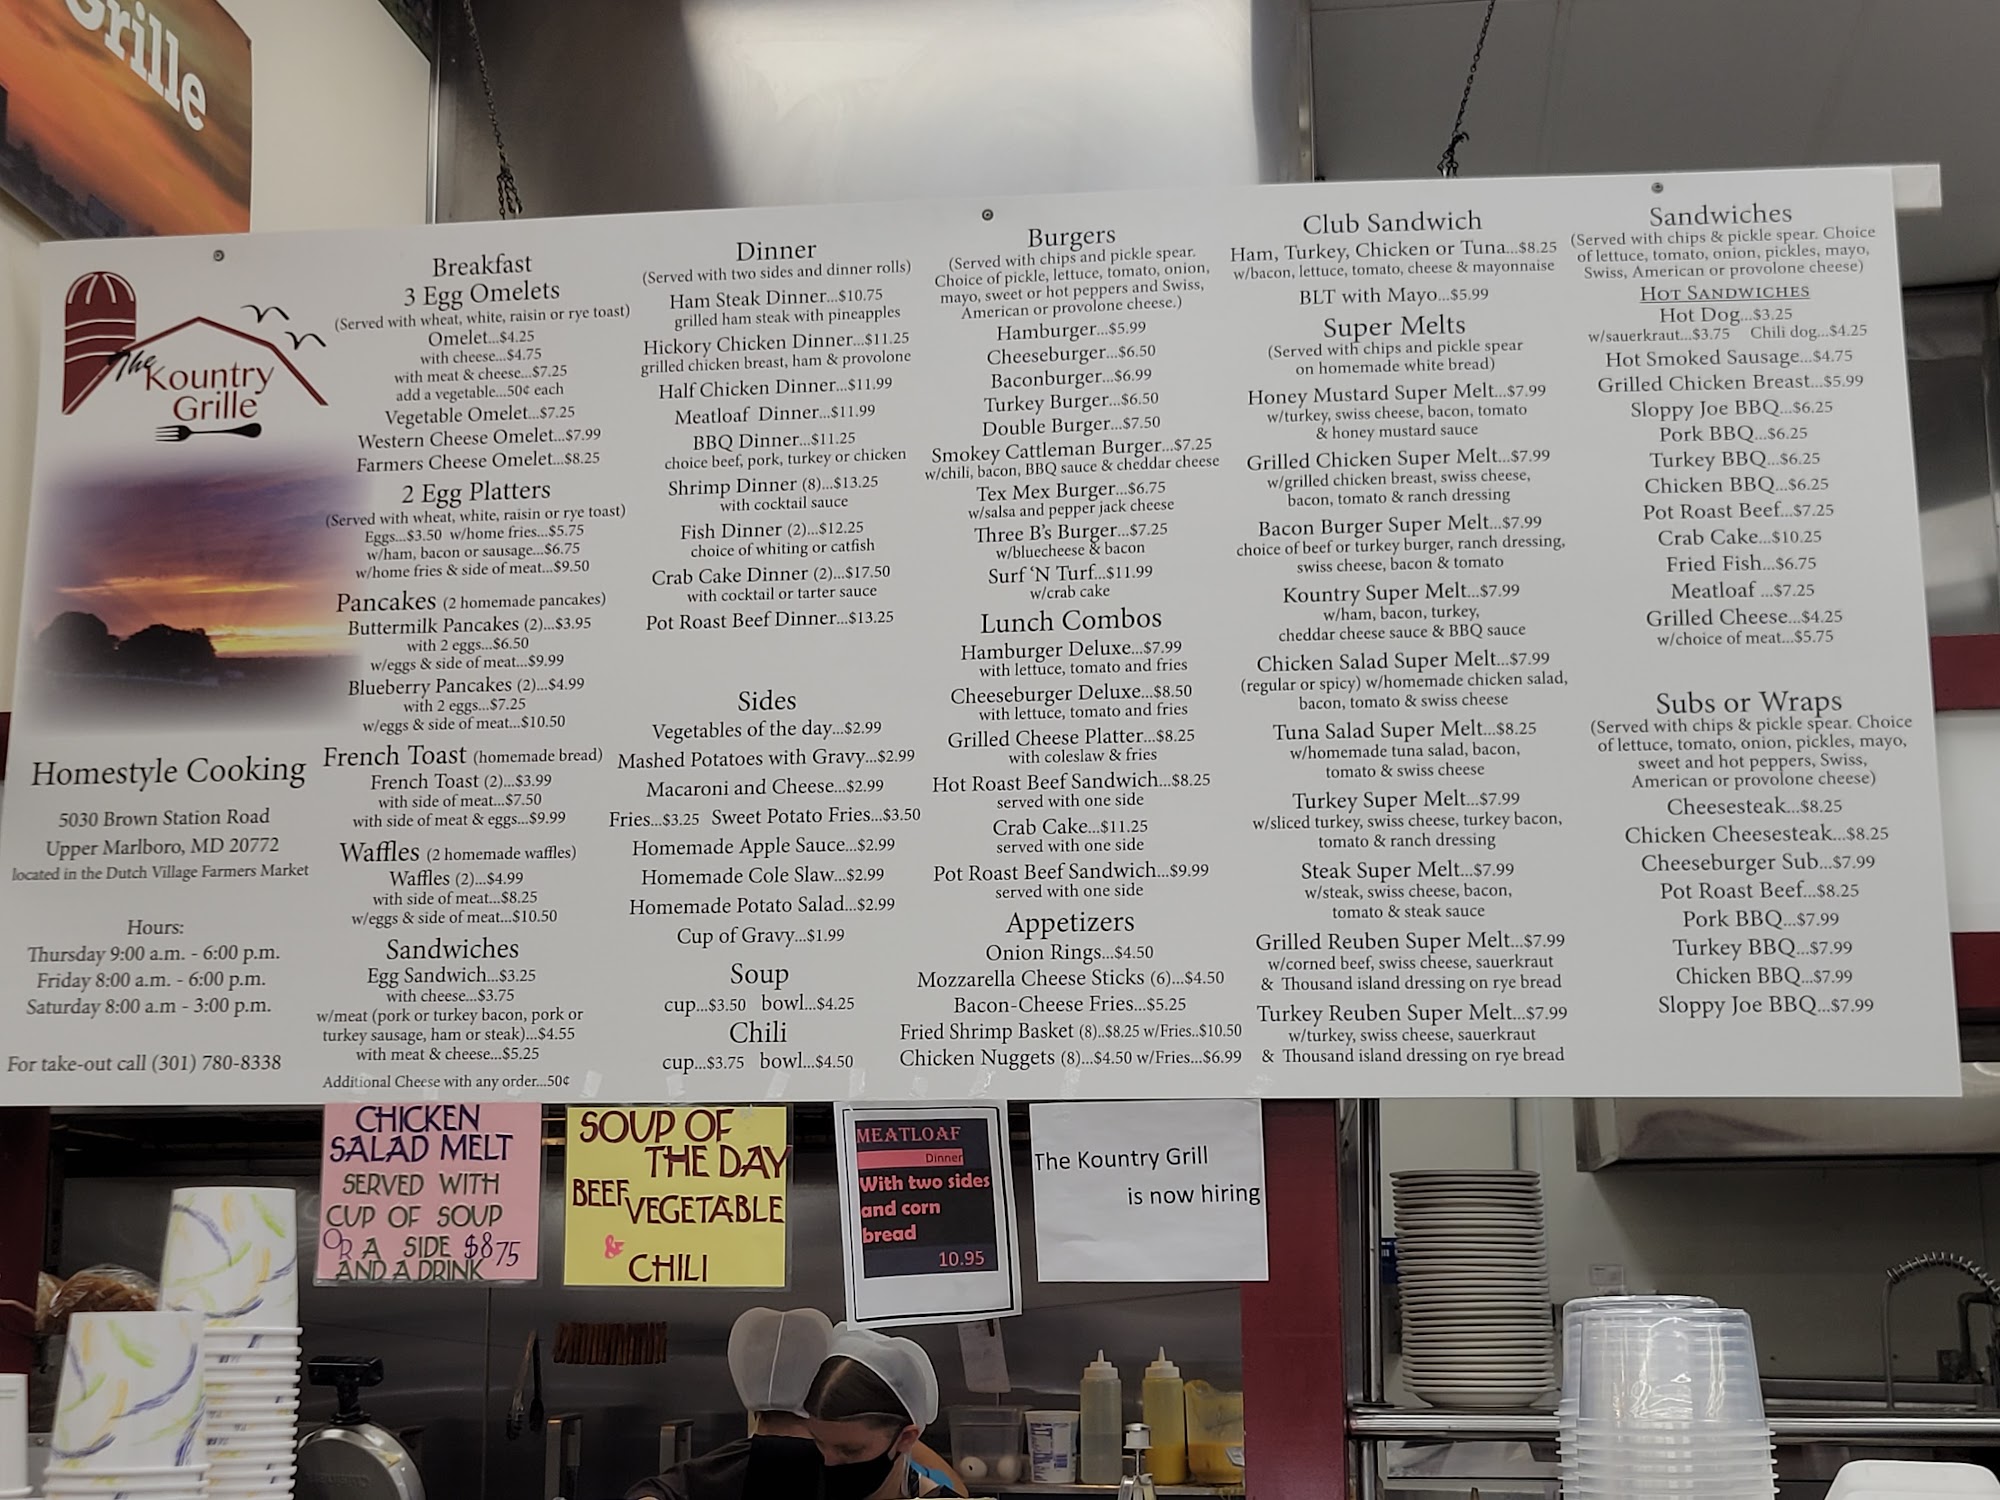 Grille
The
Kountry
Grille
Homestyle Cooking
5030 Brown Station Road
Upper Marlboro, MD 20772
located in the Dutch Village Farmers Market
Hours:
Thursday 9:00 a.m. - 6:00 p.m.
Friday 8:00 a.m. - 6:00 p.m.
Saturday 8:00 a.m - 3:00 p.m.
For take-out call (301) 780-8338
Breakfast
3 Egg Omelets
(Served with wheat, white, raisin or rye toast)
Omelet...$4.25
with cheese...$4.75
with meat & cheese...$7.25
add a vegetable...50¢ each
Vegetable Omelet...$7.25
Western Cheese Omelet...$7.99
Farmers Cheese Omelet...$8.25
2 Egg Platters
(Served with wheat, white, raisin or rye toast)
Eggs...$3.50 w/home fries...$5.75
w/ham, bacon or sausage...$6.75
w/home fries & side of meat...$9.50
Pancakes (2 homemade pancakes)
Buttermilk Pancakes (2)...$3.95
with 2 eggs...$6.50
w/eggs & side of meat...$9.99
Blueberry Pancakes (2)...$4.99
with 2 eggs...$7.25
w/eggs & side of meat...$10.50
French Toast (homemade bread)
French Toast (2)...$3.99
with side of meat...$7.50
with side of meat & eggs...$9.99
Waffles (2 homemade waffles)
Waffles (2)...$4.99
with side of meat...$8.25
w/eggs & side of meat...$10.50
Sandwiches
Egg Sandwich...$3.25
with cheese...$3.75
w/meat (pork or turkey bacon, pork or
turkey sausage, ham or steak)...$4.55
with meat & cheese...$5.25
Additional Cheese with any order...50¢
Dinner
(Served with two sides and dinner rolls)
Ham Steak Dinner...$10.75
grilled ham steak with pineapples
Hickory Chicken Dinner...$11.25
grilled chicken breast, ham & provolone
Half Chicken Dinner...$11.99
Meatloaf Dinner...$11.99
BBQ Dinner...$11.25
choice beef, pork, turkey or chicken
Shrimp Dinner (8)...$13.25
with cocktail sauce
Fish Dinner (2)...$12.25
choice of whiting or catfish
Crab Cake Dinner (2)...$17.50
with cocktail or tarter sauce
Pot Roast Beef Dinner...$13.25
Sides
Vegetables of the day...$2.99
Mashed Potatoes with Gravy...$2.99
Macaroni and Cheese...$2.99
Fries...$3.25 Sweet Potato Fries...$3.50
Homemade Apple Sauce...$2.99
Homemade Cole Slaw...$2.99
Homemade Potato Salad...$2.99
Cup of Gravy...$1.99
Soup
cup...$3.50 bowl...$4.25
Chili
cup...$3.75 bowl...$4.50
Burgers
(Served with chips and pickle spear.
Choice of pickle, lettuce, tomato, onion,
mayo, sweet or hot peppers and Swiss,
American or provolone cheese.)
Hamburger...$5.99
Cheeseburger...$6.50
Baconburger...$6.99
Turkey Burger...$6.50
Double Burger...$7.50
Smokey Cattleman Burger...$7.25
w/chili, bacon, BBQ sauce & cheddar cheese
Tex Mex Burger...$6.75
w/salsa and pepper jack cheese
Three B's Burger...$7.25
w/bluecheese & bacon
Surf 'N Turf...$11.99
w/crab cake
Lunch Combos
Hamburger Deluxe...$7.99
with lettuce, tomato and fries
Cheeseburger Deluxe...$8.50
with lettuce, tomato and fries
Grilled Cheese Platter...$8.25
with coleslaw & fries
Hot Roast Beef Sandwich...$8.25
served with one side
Crab Cake...$11.25
served with one side
Pot Roast Beef Sandwich...$9.99
served with one side
Appetizers
Onion Rings...$4.50
Mozzarella Cheese Sticks (6)...$4.50
Bacon-Cheese Fries...$5.25
Fried Shrimp Basket (8)..$8.25 w/Fries..$10.50
Chicken Nuggets (8)...$4.50 w/Fries...$6.99
Club Sandwich
Ham, Turkey, Chicken or Tuna...$8.25
w/bacon, lettuce, tomato, cheese & mayonnaise
BLT with Mayo...$5.99
Super Melts
(Served with chips and pickle spear
on homemade white bread)
Honey Mustard Super Melt...$7.99
w/turkey, swiss cheese, bacon, tomato
& honey mustard sauce
Grilled Chicken Super Melt...$7.99
w/grilled chicken breast, swiss cheese,
bacon, tomato & ranch dressing
Bacon Burger Super Melt...$7.99
choice of beef or turkey burger, ranch dressing,
swiss cheese, bacon & tomato
Kountry Super Melt...$7.99
w/ham, bacon, turkey,
cheddar cheese sauce & BBQ sauce
Chicken Salad Super Melt...$7.99
(regular or spicy) w/homemade chicken salad,
bacon, tomato & swiss cheese
Tuna Salad Super Melt...$8.25
w/homemade tuna salad, bacon,
tomato & swiss cheese
Turkey Super Melt...$7.99
w/sliced turkey, swiss cheese, turkey bacon,
tomato & ranch dressing
Steak Super Melt...$7.99
w/steak, swiss cheese, bacon,
tomato & steak sauce
Grilled Reuben Super Melt...$7.99
w/corned beef, swiss cheese, sauerkraut
& Thousand island dressing on rye bread
Turkey Reuben Super Melt...$7.99
w/turkey, swiss cheese, sauerkraut
& Thousand island dressing on rye bread
Sandwiches
(Served with chips & pickle spear. Choice
of lettuce, tomato, onion, pickles, mayo,
Swiss, American or provolone cheese)
HOT SANDWICHES
Hot Dog...$3.25
w/sauerkraut...$3.75 Chili dog...$4.25
Hot Smoked Sausage...$4.75
Grilled Chicken Breast...$5.99
Sloppy Joe BBQ...$6.25
Pork BBQ...$6.25
Turkey BBQ...$6.25
Chicken BBQ...$6.25
Pot Roast Beef...$7.25
Crab Cake...$10.25
Fried Fish...$6.75
Meatloaf ...$7.25
Grilled Cheese...$4.25
w/choice of meat...$5.75
Subs or Wraps
(Served with chips & pickle spear. Choice
of lettuce, tomato, onion, pickles, mayo,
sweet and hot peppers, Swiss,
American or provolone cheese)
Cheesesteak...$8.25
Chicken Cheesesteak...$8.25
Cheeseburger Sub...$7.99
Pot Roast Beef...$8.25
Pork BBQ...$7.99
Turkey BBQ...$7.99
Chicken BBQ...$7.99
Sloppy Joe BBQ...$7.99
CHICKEN
SALAD MELT
SERVED WITH
CUP OF SOUP
OR A SIDE $8.75
AND A DRINK
SOUP OF
THE DAY
BEEF VEGETABLE
&
CHILI
MEATLOAF
Dinner
With two sides
and corn
bread
10.95
The Kountry Grill
is now hiring